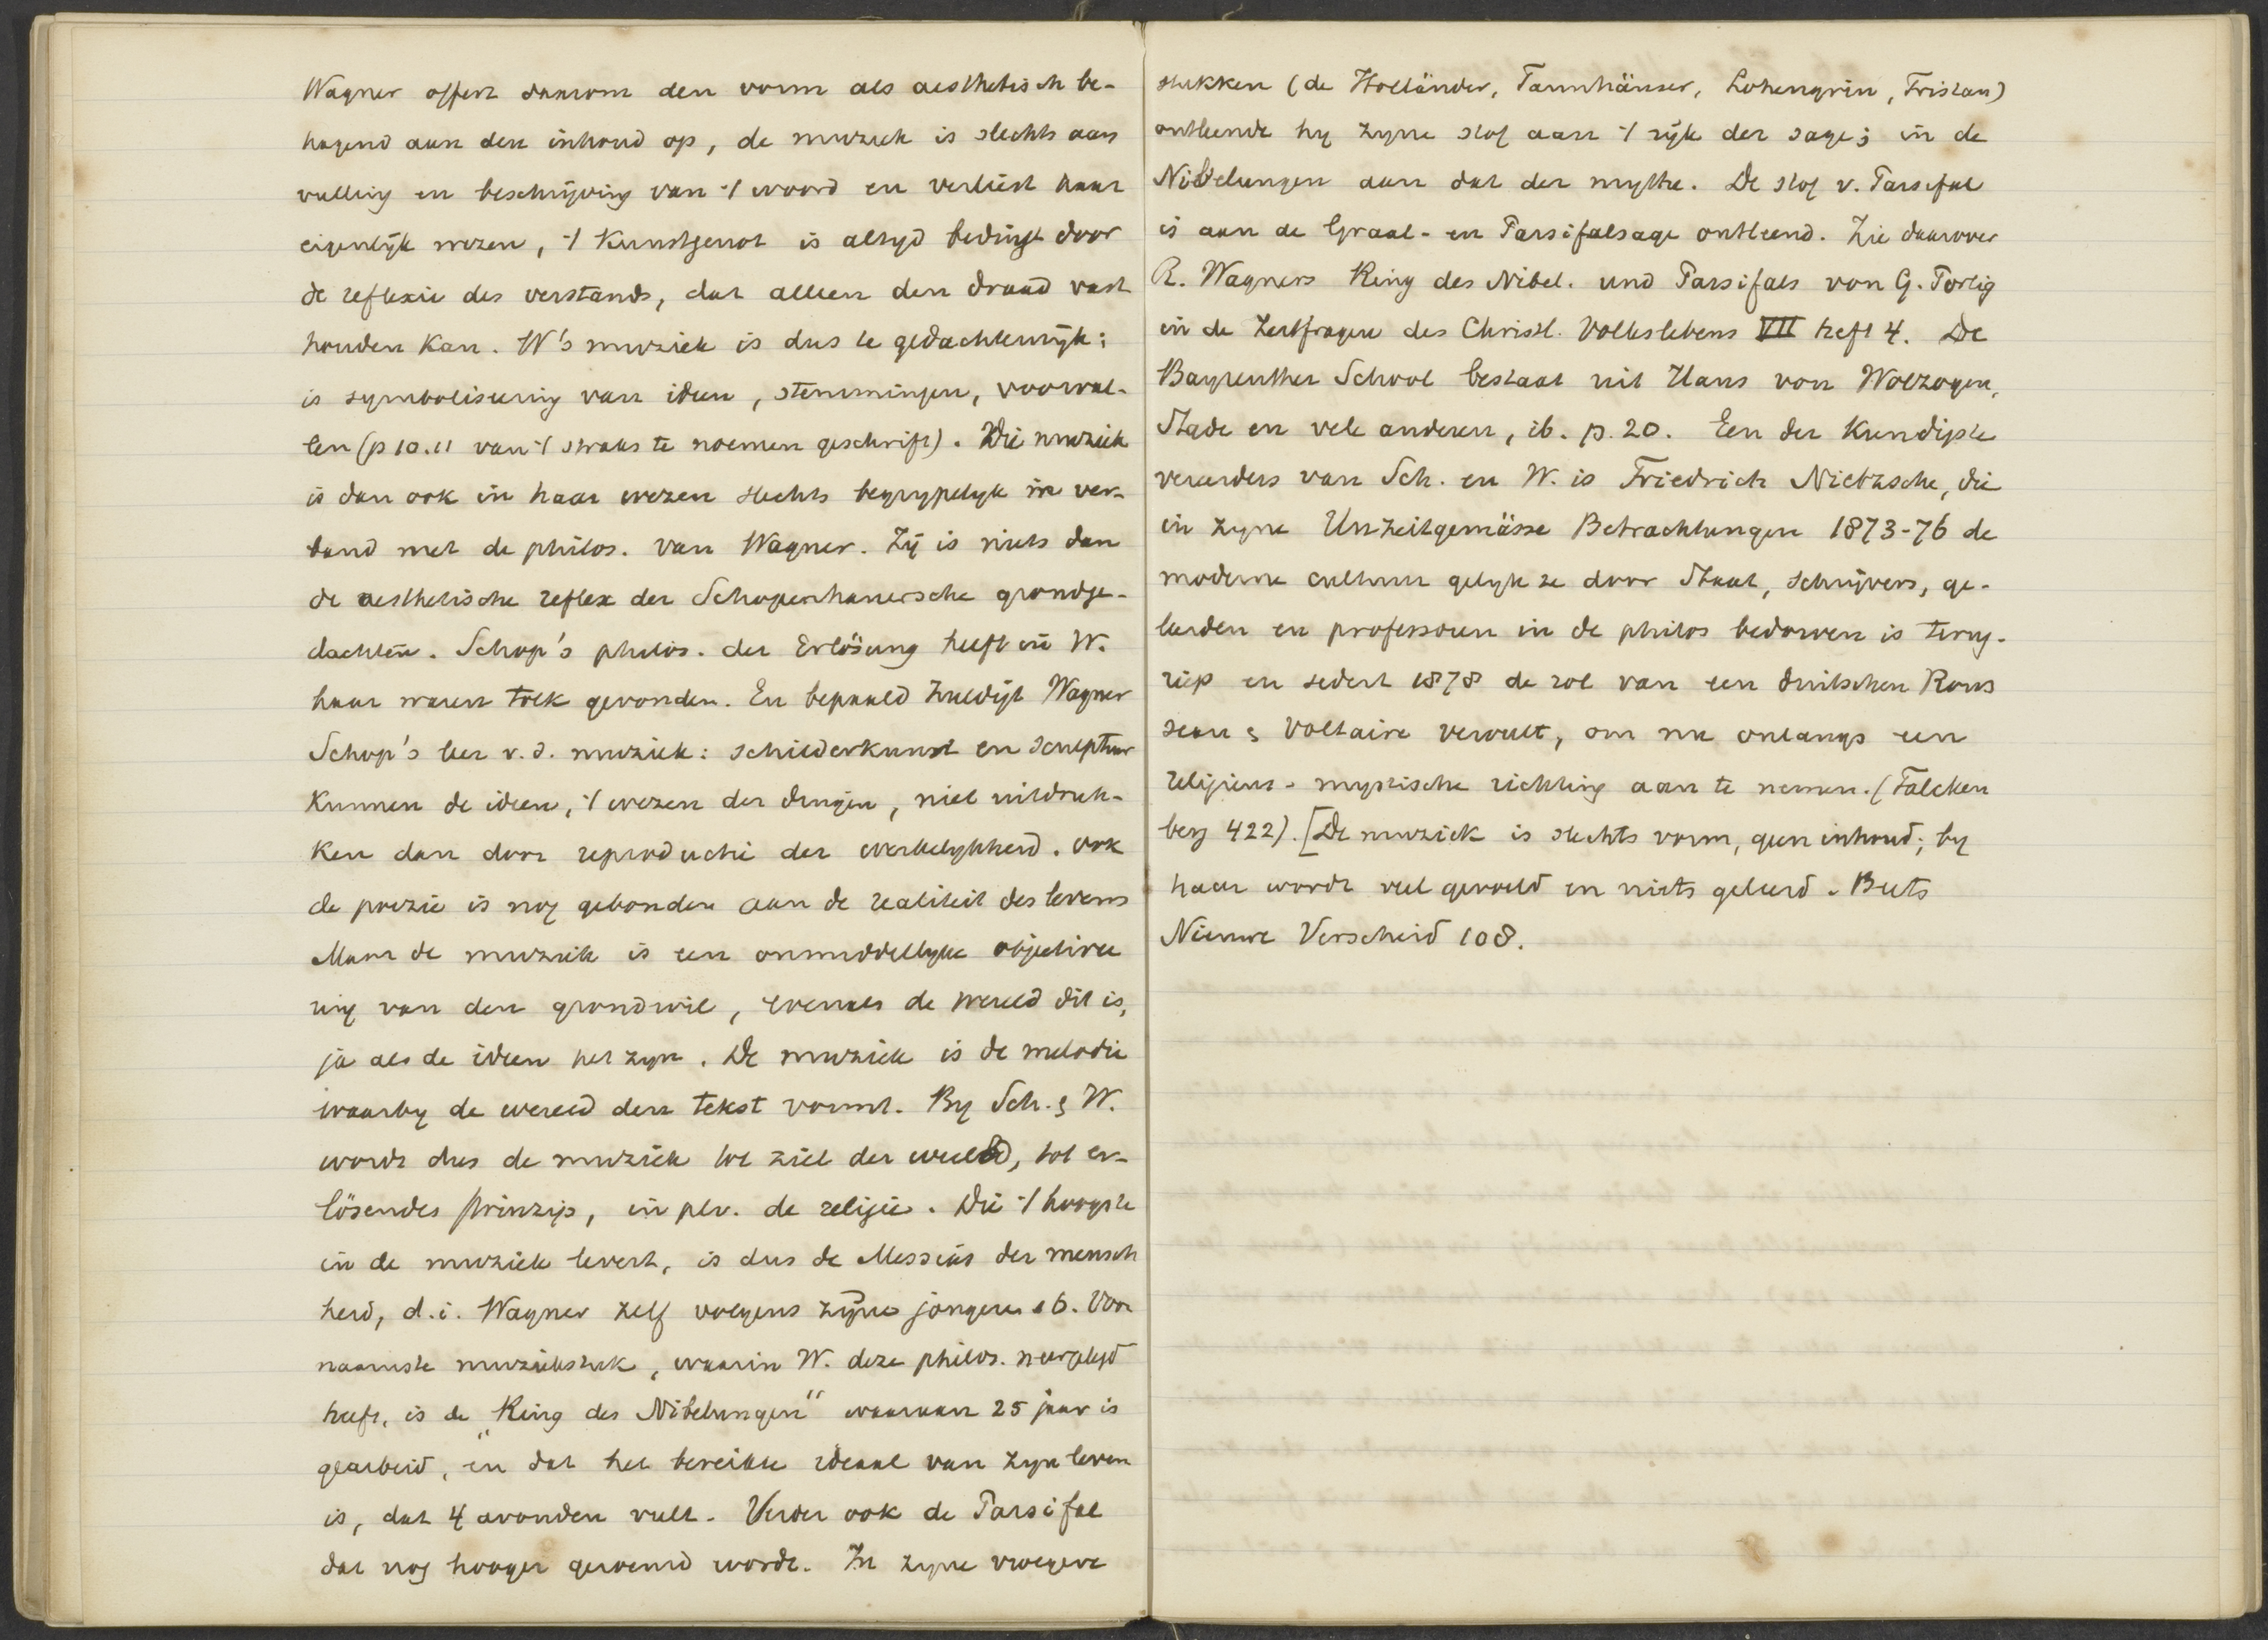 Wagner offert daarom den vorm als aesthetisch be-
hagend aan den inhoud op, de muziek is slechts aan
vulling en beschrijving van 't woord en verliest haar
eigenlijk wezen, 't Kunstgenot is altyd bedingt door
de reflexie des verstands, dat alleen den draad vast
houden kan. W's muziek is dus te gedachtenrijk;
is symbolisering van ideen, stemmingen, voorval-
len (p 10.11 van 't straks te noemen geschrift). Die muziek
is dan ook in haar wezen slechts begrypelyk in ver-
band met de philos. van Wagner. Zij is niets dan
de aesthetische reflex der Schopenhauersche grondge-
dachten. Schop's philos. der Erlösung heeft in W.
haar waren tolk gevonden. En bepaald huldigt Wagner
Schop's leer v. d. muziek: schilderkunst en sculptuur
Kunnen de ideen, 't wezen der dingen, niet uitdruk-
ken dan door reproductie der werkelykheid. ook
de poezie is nog gebonden aan de realiteit des levens
Maar de muziek is een onmiddellyke objective
ring van den grondwil, evenals de wereld dit is,
ja als de ideen het zyn. De muziek is de melodie
waarby de wereld den tekst vormt. By Sch. & W.
wordt dus de muziek tot ziel der wereld, tot er-
lösendes Prinzip, in plv. de religie. Die 't hoogste
in de muziek levert, is dus de Messias der mensch
heid, d.i. Wagner zelf volgens zijne jongeren 16. Voor
naamste muziekstuk, waarin W. deze philos. neergelegd
heeft, is de "Ring des Nibelungen" waaraan 25 jaar is
gearbeid, en dat het bereikte ideaal van zyn leven
is, dat 4 avonden vult. Verder ook de Parsifal
dat nog hooger geroemd wordt. In zyne vroegere
stukken (de Holländer, Tannhäuser, Lohengrin, Tristan)
ontleende hy zyne stof aan 't rijk der sage; in de
Nibelungen aan dat der mythe. De stof v. Parsifal
is aan de Graal- en Parsifalsage ontleend. Zie daarover
R. Wagners Ring des Nibel. und Parsifals von G. Portig
in de Zeitfragen des Christl. Volkslebens VII heft 4. De
Bayreuther School bestaat uit Hans von Wolzogen,
Stade en vele anderen, ib. p. 20. Een der Kundigste
vereerders van Sch. en W. is Friedrich Nietzsche, die
in zyne Unzeitgemässe Betrachtungen 1873-76 de
moderne cultuur gelyk ze door Staat, schrijvers, ge-
leerden en professoren in de philos bedorven is terug-
riep en sedert 1878 de rol van een duitschen Rous
seau & Voltaire vervult, om nu onlangs een
religieus-mystische richting aan te nemen. (Falcken
berg 422). [De muziek is slechts vorm, geen inhoud; by
haar wordt veel gevoeld en niets geleerd. Beets
Nieuwe Verscheid 108.